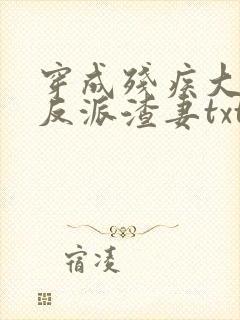 穿成残疾大
反派渣妻txt
宿凌